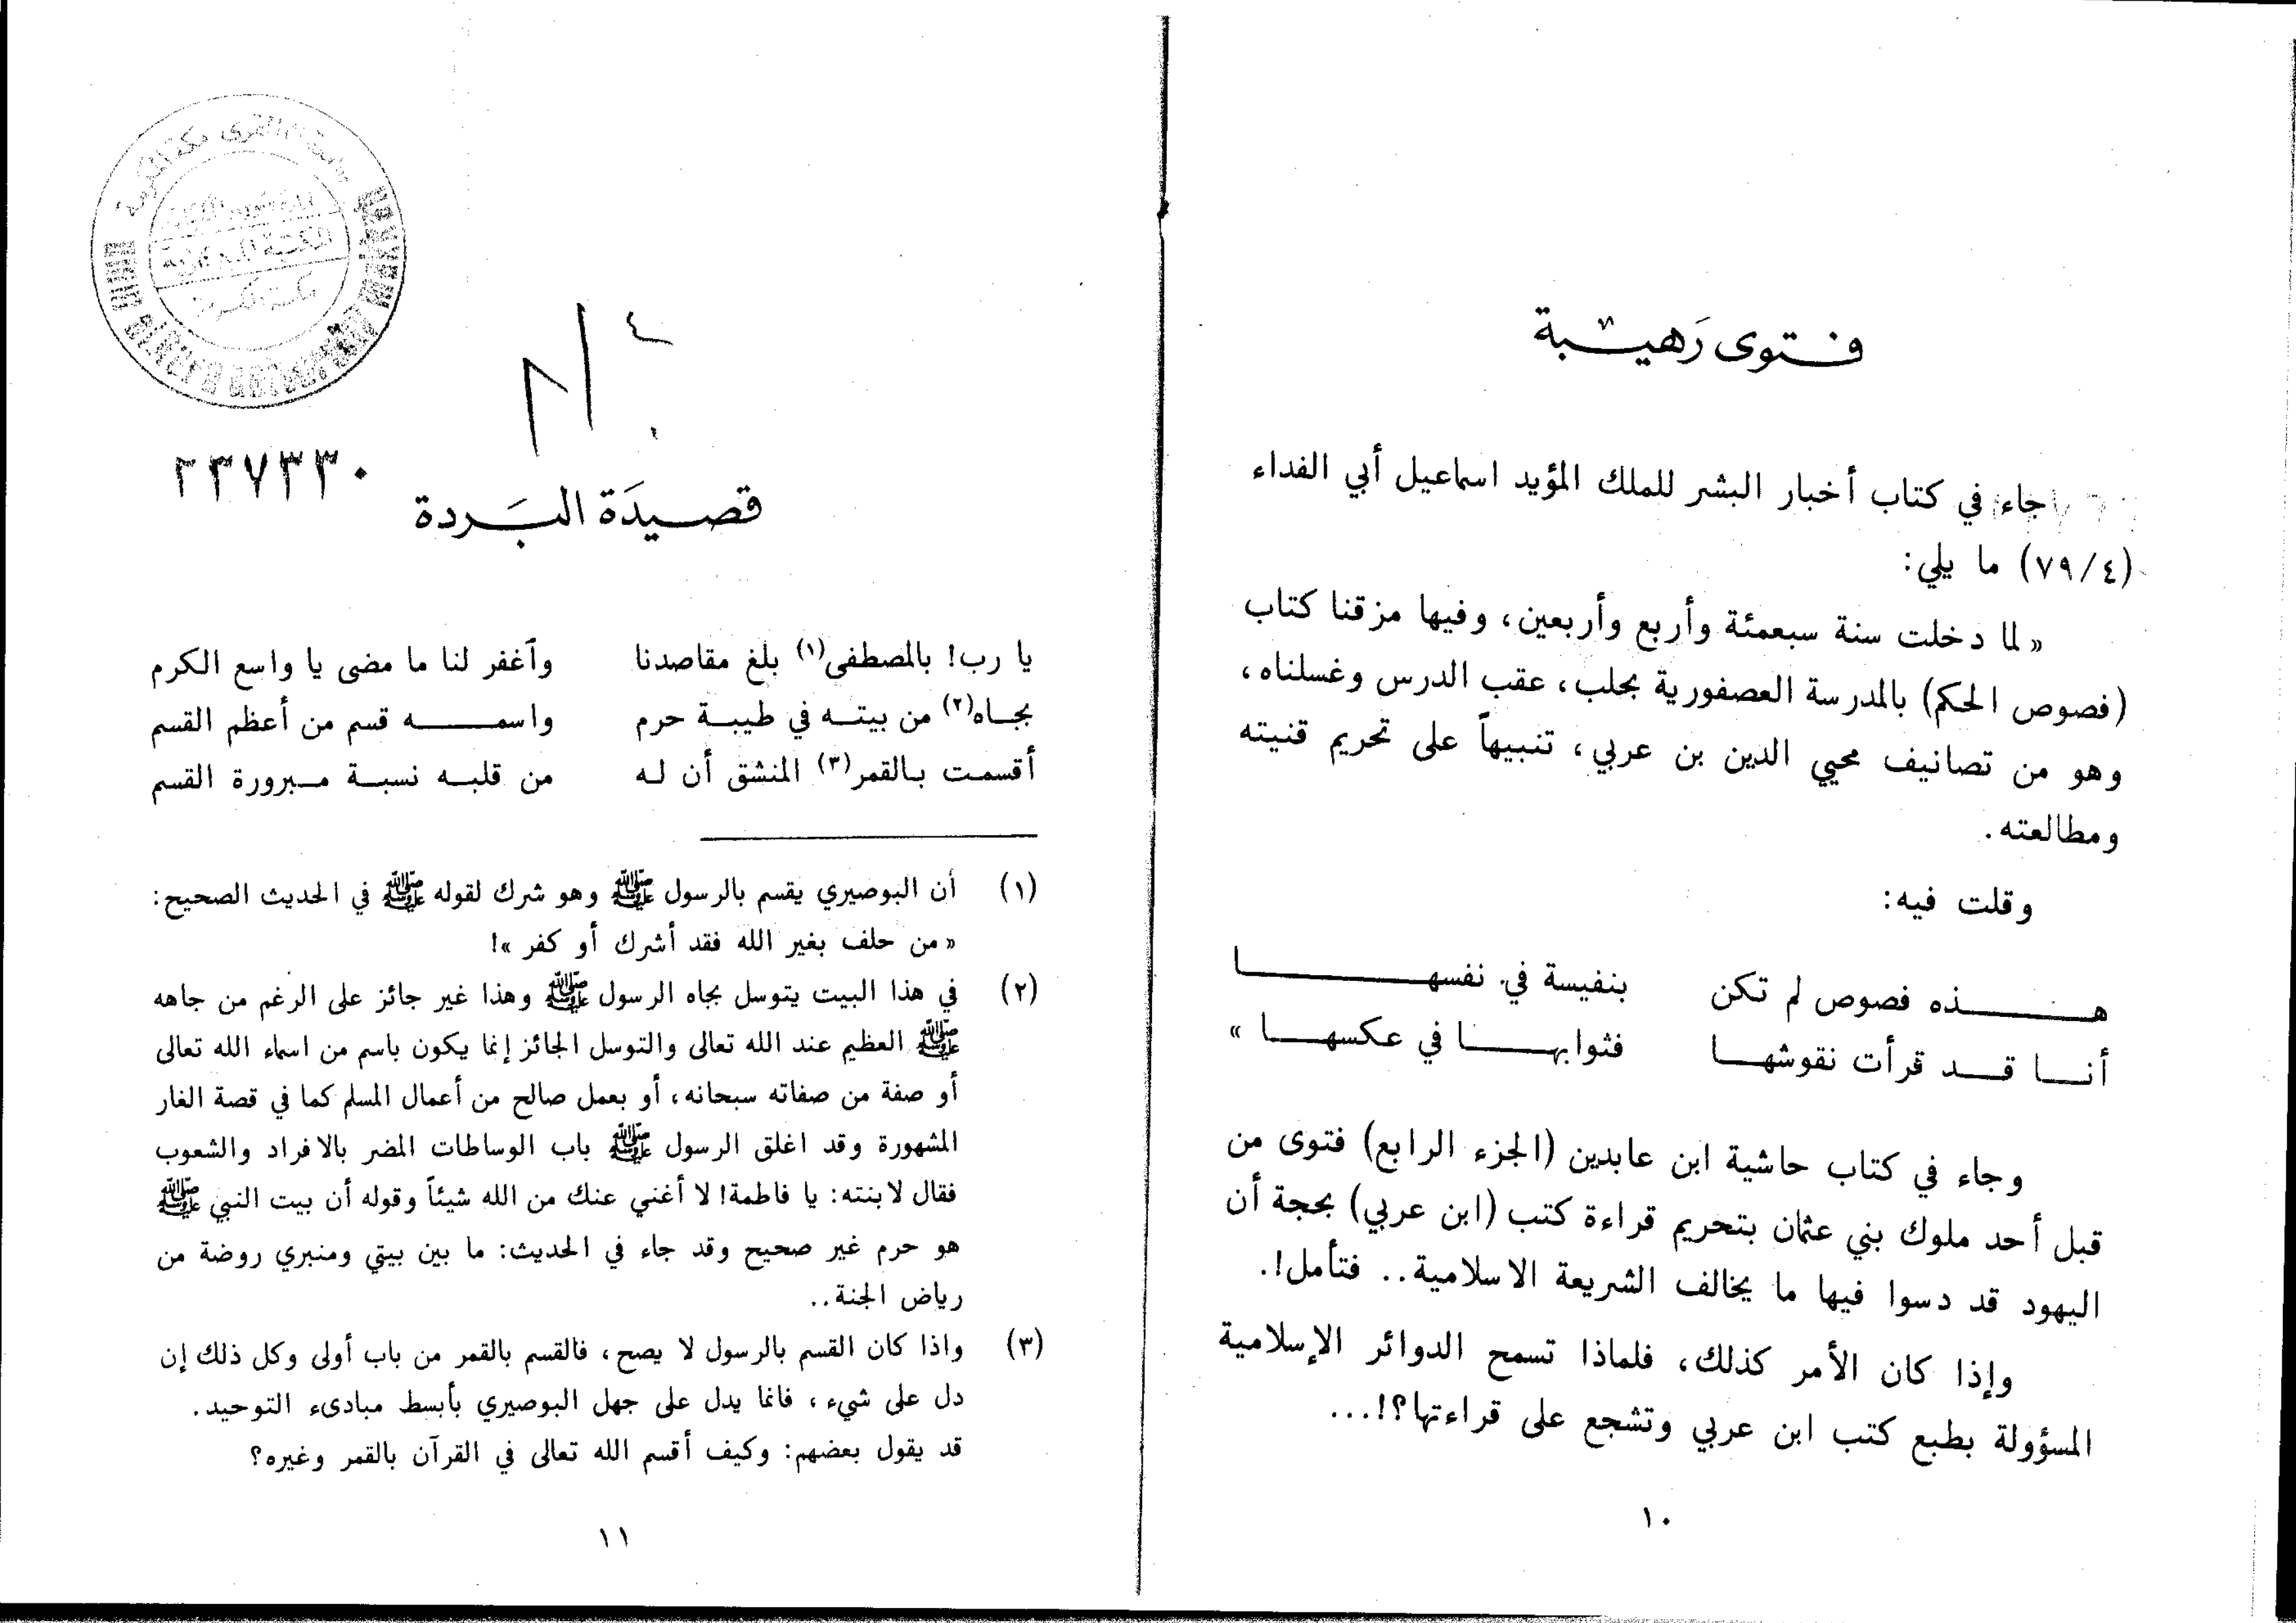 فتوى رهيبة
جاء في كتاب أخبار البشر للملك المؤيد اسماعيل أبي الفداء
(٧٩/٤) ما يلي:
« لما دخلت سنة سبعمئة وأربع وأربعين، وفيها مزقنا كتاب
(فصوص الحكم) بالمدرسة العصفورية بحلب، عقب الدرس وغسلناه،
وهو من تصانيف محيي الدين بن عربي، تنبيهاً على تحريم قنيته
ومطالعته.
وقلت فيه:
هذه فصوص لم تكن بنفيسة في نفسها
أنا قد قرأت نقوشها فثوابها في عكسها »
وجاء في كتاب حاشية ابن عابدين (الجزء الرابع) فتوى من
قبل أحد ملوك بني عثمان بتحريم قراءة كتب (ابن عربي) بحجة أن
اليهود قد دسوا فيها ما يخالف الشريعة الاسلامية.. فتأمل!.
وإذا كان الأمر كذلك، فلماذا تسمح الدوائر الإسلامية
المسؤولة بطبع كتب ابن عربي وتشجع على قراءتها؟!...
١٠
٢٣٧٣٣٠
قصيدَة البَردة
يا رب! بالمصطفى(١) بلغ مقاصدنا وآغفر لنا ما مضى يا واسع الكرم
بجاه(٢) من بيته في طيبة حرم واسمه قسم من أعظم القسم
أقسمت بالقمر(٣) المنشق أن له من قلبه نسبة مبرورة القسم
(١) أن البوصيري يقسم بالرسول ﷺ وهو شرك لقوله ﷺ في الحديث الصحيح:
« من حلف بغير الله فقد أشرك أو كفر »!
(٢) في هذا البيت يتوسل بجاه الرسول ﷺ وهذا غير جائز على الرغم من جاهه
ﷺ العظيم عند الله تعالى والتوسل الجائز إنما يكون باسم من اسماء الله تعالى
أو صفة من صفاته سبحانه، أو بعمل صالح من أعمال المسلم كما في قصة الغار
المشهورة وقد اغلق الرسول ﷺ باب الوساطات المضر بالافراد والشعوب
فقال لابنته: يا فاطمة! لا أغني عنك من الله شيئاً وقوله أن بيت النبي ﷺ
هو حرم غير صحيح وقد جاء في الحديث: ما بين بيتي ومنبري روضة من
رياض الجنة..
(٣) واذا كان القسم بالرسول لا يصح، فالقسم بالقمر من باب أولى وكل ذلك إن
دل على شيء، فانما يدل على جهل البوصيري بأبسط مبادىء التوحيد.
قد يقول بعضهم: وكيف أقسم الله تعالى في القرآن بالقمر وغيره؟
١١